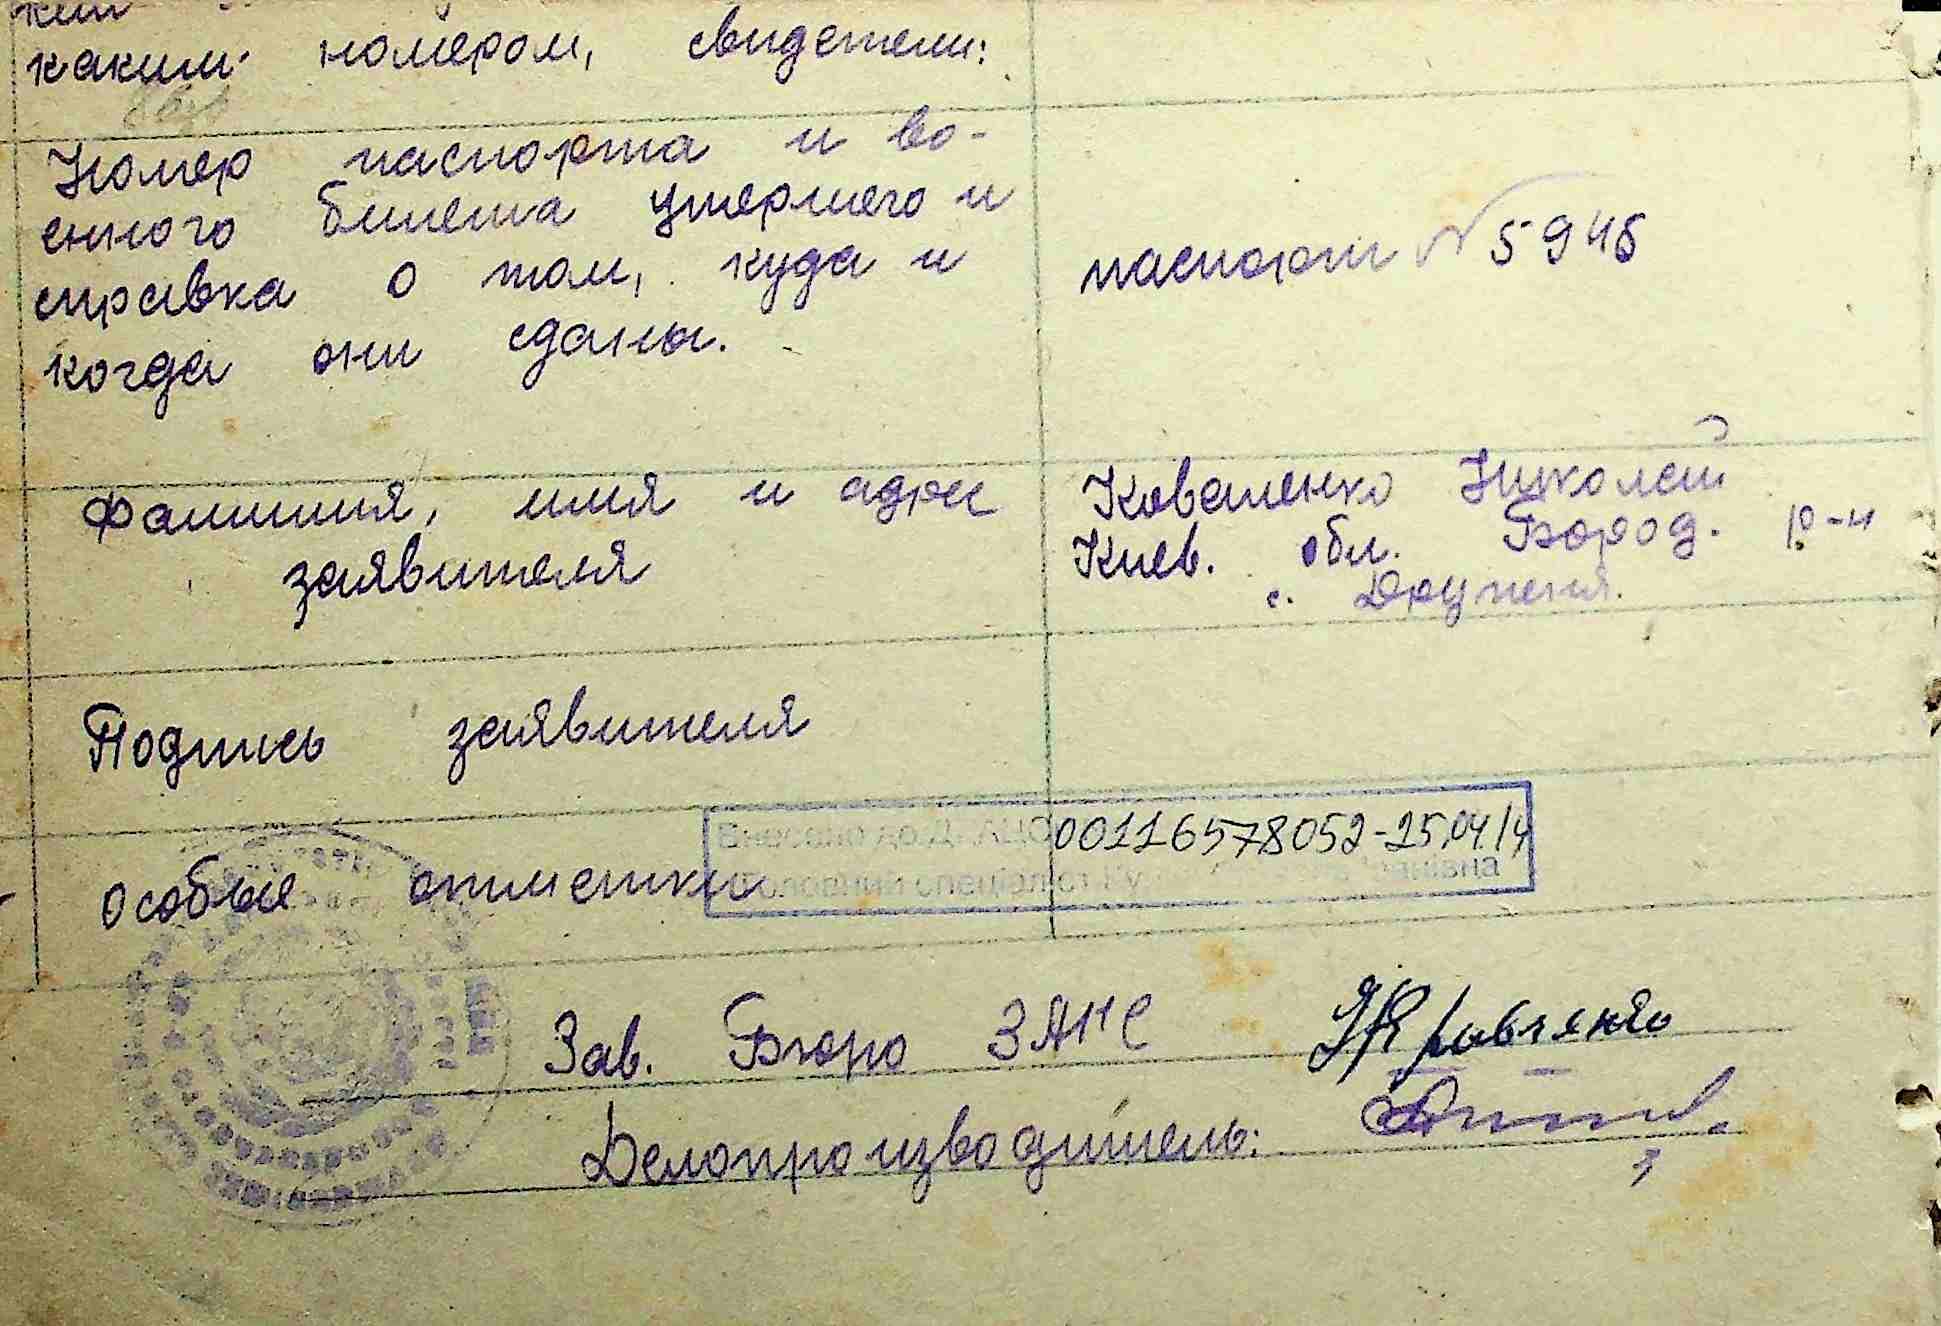 каким номером, свидетели:
Номер паспорта и во-
енного билета умершего и
справка о том, куда и
когда они сданы.
паспорт № 5948
Фамилия, имя и адрес
заявителя
Коваленко Николай
Киев. обл. Бород. р-н
с. Друценя.
Подпись заявителя
Внесено до ДРАЦС 00116578052-25.04.14
Головний спеціаліст
особые отметки
Зав. Бюро ЗАГС
Делопроизводитель: